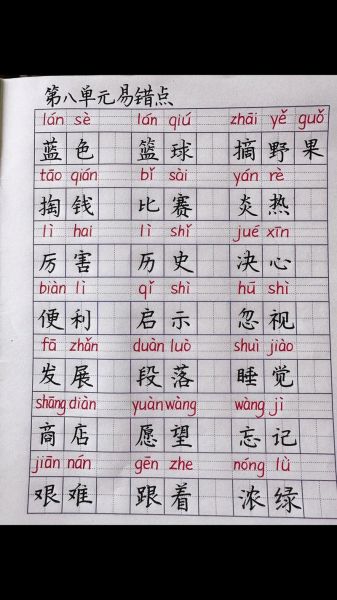 第八单元易错点
lán sè lán qiú zhāi yě guǒ
蓝色 篮球 摘野果
tāo qián bǐ sài yán rè
掏钱 比赛 炎热
lì hai lì shǐ jué xīn
厉害 历史 决心
biàn lì qǐ shì hū shì
便利 启示 忽视
fā zhǎn duàn luò shuì jiào
发展 段落 睡觉
shāng diàn yuàn wàng wàng jì
商店 愿望 忘记
jiān nán gēn zhe nóng lǜ
艰难 跟着 浓绿